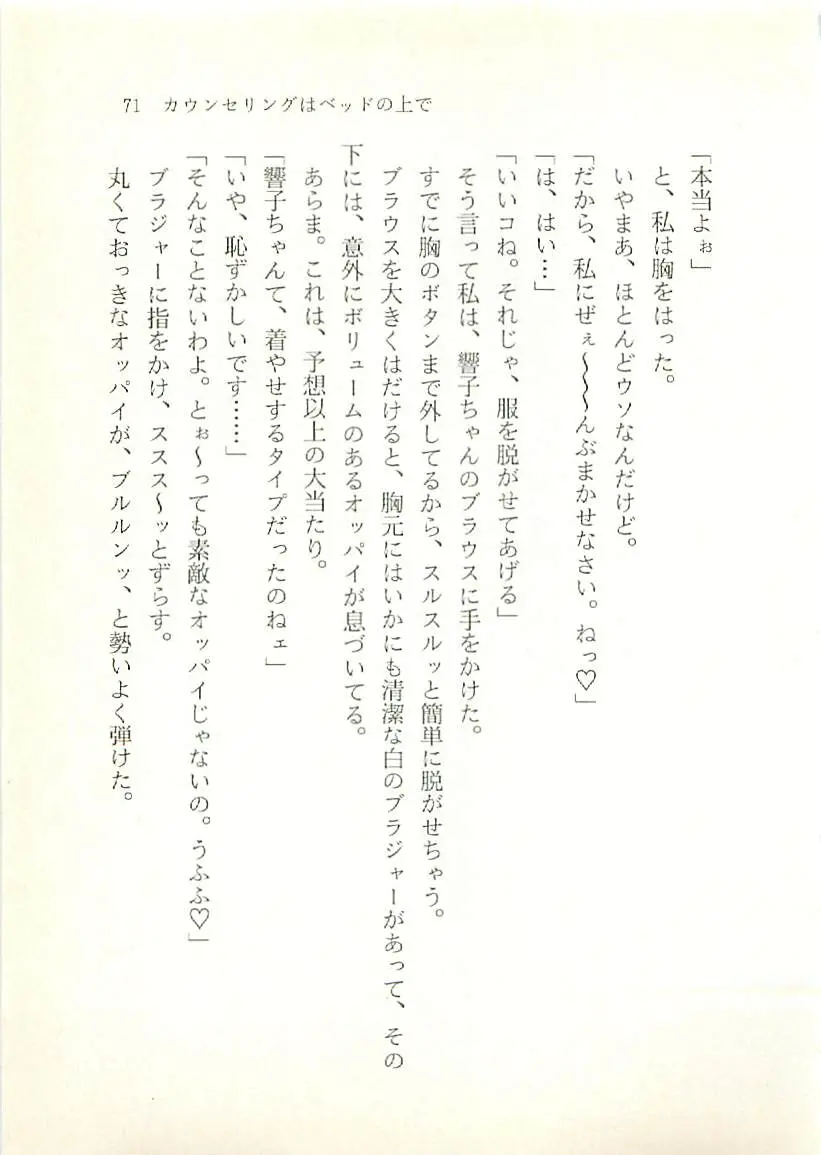 71 カウンセリングはベッドの上で
「本当よぉ」
と、私は胸をはった。
いやまあ、ほとんどウソなんだけど。
「だから、私にぜぇ〜〜〜んぶまかせなさい。ねっ♡」
「は、はい…」
「いいコね。それじゃ、服を脱がせてあげる」
そう言って私は、響子ちゃんのブラウスに手をかけた。
すでに胸のボタンまで外してるから、スルスルッと簡単に脱がせちゃう。
ブラウスを大きくはだけると、胸元にはいかにも清潔な白のブラジャーがあって、その
下には、意外にボリュームのあるオッパイが息づいてる。
あらま。これは、予想以上の大当たり。
「響子ちゃんて、着やせするタイプだったのねェ」
「いや、恥ずかしいです……」
「そんなことないわよ。とぉ〜っても素敵なオッパイじゃないの。うふふ♡」
ブラジャーに指をかけ、ススス〜ッとずらす。
丸くておっきなオッパイが、ブルルンッ、と勢いよく弾けた。